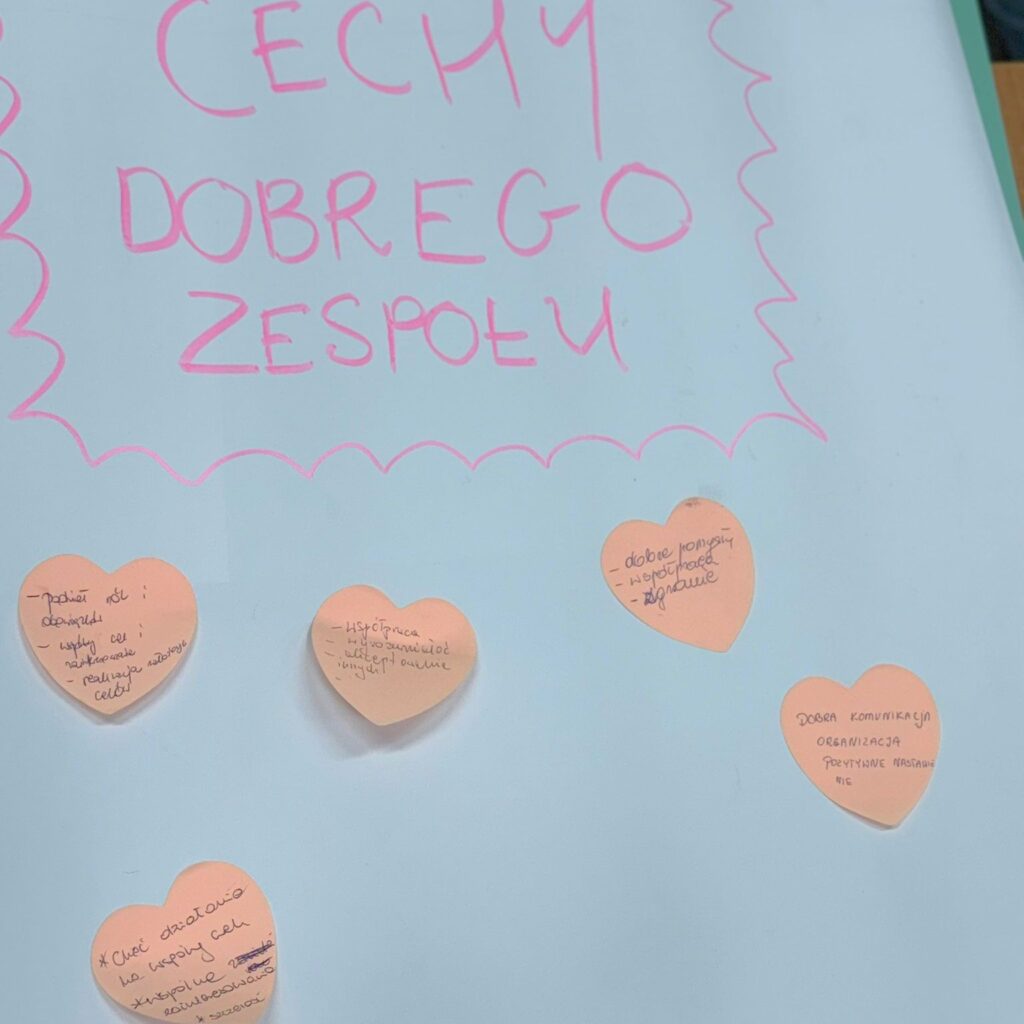 CECHY
DOBREGO
ZESPOŁU
- podział ról i
obowiązków
- wspólny cel i
- realizacja
celów
- współpraca
- wyrozumiałość
- akceptowanie
innych
- dobre pomysły
- współpraca
- zgranie
DOBRA KOMUNIKACJA
ORGANIZACJA
POZYTYWNE NASTAWIE
NIE
* Chęć działania
na wspólny cel
* wspólne
zainteresowania
* szczerość